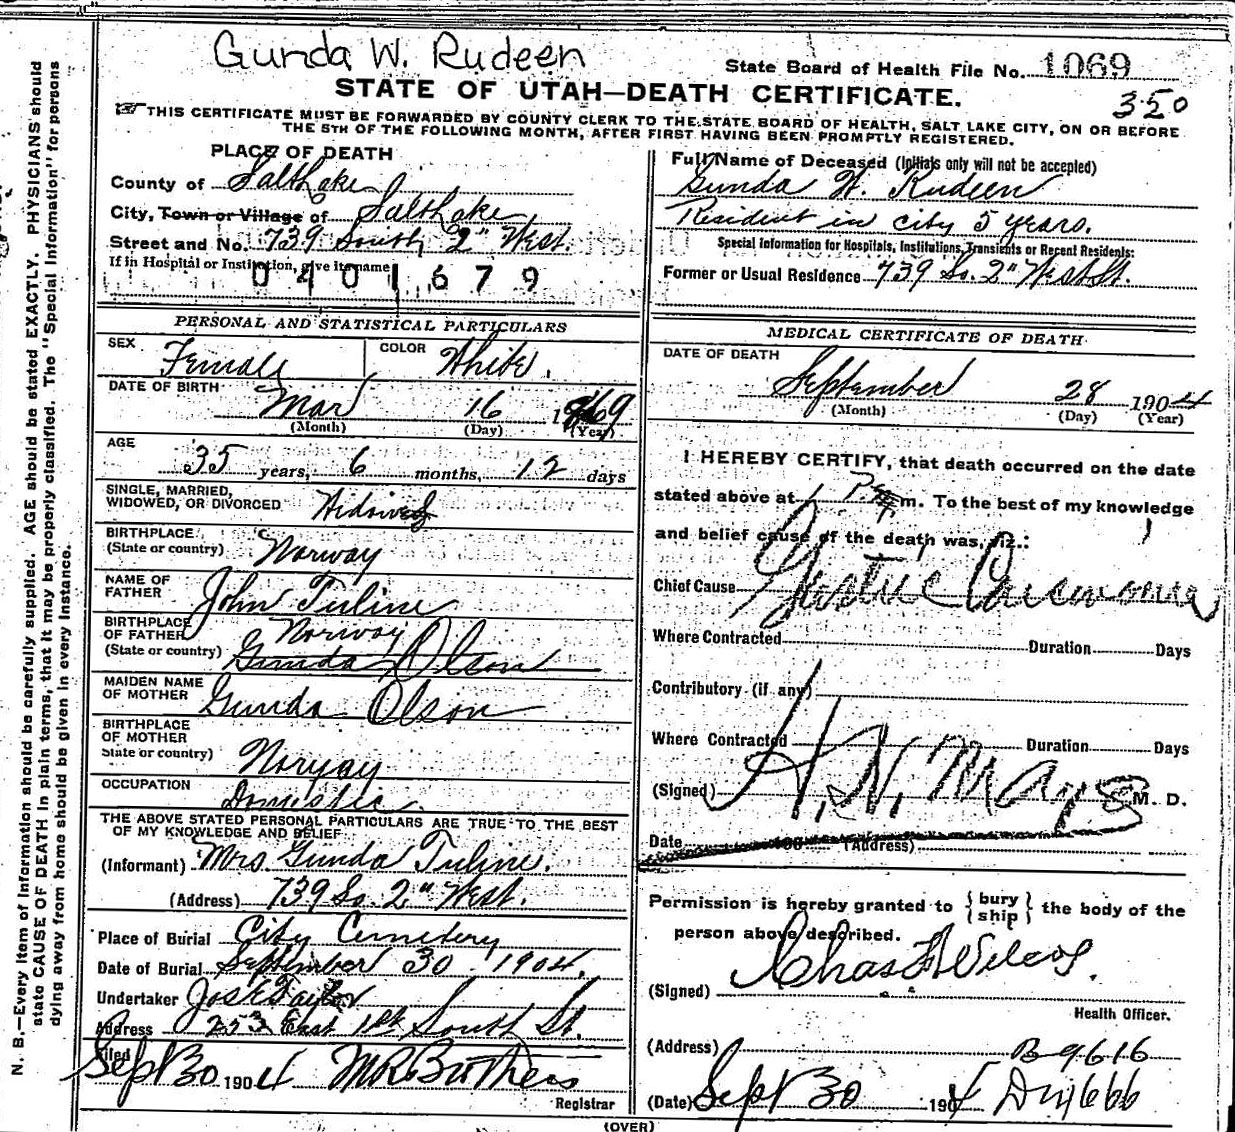 Gunda W. Rudeen
State Board of Health File No. 1069
STATE OF UTAH—DEATH CERTIFICATE.
350
THIS CERTIFICATE MUST BE FORWARDED BY COUNTY CLERK TO THE STATE BOARD OF HEALTH, SALT LAKE CITY, ON OR BEFORE
THE 5TH OF THE FOLLOWING MONTH, AFTER FIRST HAVING BEEN PROMPTLY REGISTERED.
PLACE OF DEATH
County of Salt Lake
City, Town or Village of Salt Lake
Street and No. 739 South 2" West.
If in Hospital or Institution, give its name
0401679
Full Name of Deceased (Initials only will not be accepted)
Gunda W. Rudeen
Resident in city 5 years.
Special Information for Hospitals, Institutions, Transients or Recent Residents:
Former or Usual Residence 739 So. 2" West St.
PERSONAL AND STATISTICAL PARTICULARS
SEX Female COLOR White.
DATE OF BIRTH
Mar 16 1869
(Month) (Day) (Year)
AGE
35 years, 6 months, 12 days
SINGLE, MARRIED,
WIDOWED, OR DIVORCED Widowed
BIRTHPLACE
(State or country) Norway
NAME OF
FATHER John Tuline
BIRTHPLACE
OF FATHER Norway
(State or country) Gunda Olson
MAIDEN NAME
OF MOTHER Gunda Olson
BIRTHPLACE
OF MOTHER
State or country) Norway
OCCUPATION
Domestic.
THE ABOVE STATED PERSONAL PARTICULARS ARE TRUE TO THE BEST
OF MY KNOWLEDGE AND BELIEF
(Informant) Mrs Gunda Tuline.
(Address) 739 So. 2" West.
Place of Burial City Cemetery
Date of Burial September 30 1904.
Undertaker Jos E Taylor
Address 253 East 1st South St.
Filed
Sept 30 1904
Registrar
MEDICAL CERTIFICATE OF DEATH
DATE OF DEATH
September 28 1904
(Month) (Day) (Year)
I HEREBY CERTIFY, that death occurred on the date
stated above at 1 P. m. To the best of my knowledge
and belief cause of the death was, viz.:
Chief Cause Gastric Carcinoma
Where Contracted Duration Days
Contributory (if any)
Where Contracted Duration Days
(Signed) H. N. Mayo M. D.
Date 190 (Address)
Permission is hereby granted to {bury
ship} the body of the
person above described.
(Signed) Chas F Wilcox.
Health Officer.
(Address) B 9616
(Date) Sept 30 1904
(OVER)
N. B.—Every item of information should be carefully supplied. AGE should be stated EXACTLY. PHYSICIANS should
state CAUSE OF DEATH in plain terms, that it may be properly classified. The "Special Information" for persons
dying away from home should be given in every instance.